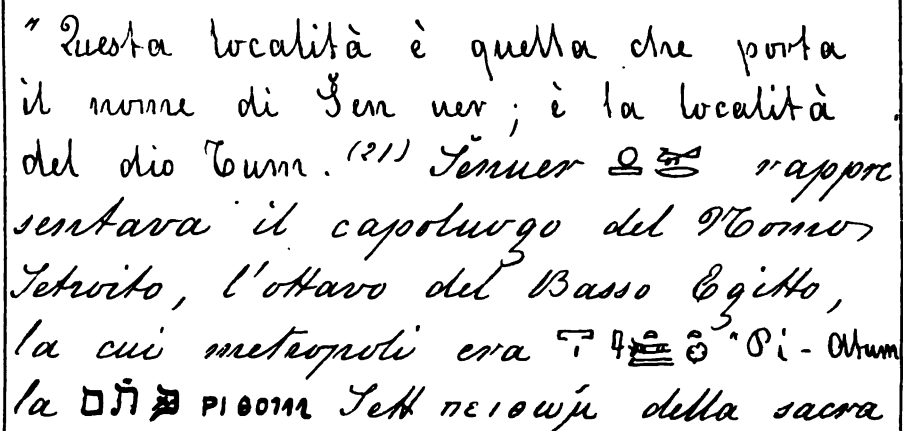 " Questa località è quella che porta
il nome di Šen uer; è la località
del dio Tum. (21) Šenuer rappre
sentava il capoluogo del Nomos
Setroito, l'ottavo del Basso Egitto,
la cui metropoli era "Pi-Atum
la פתם Sett πειθώμ della sacra